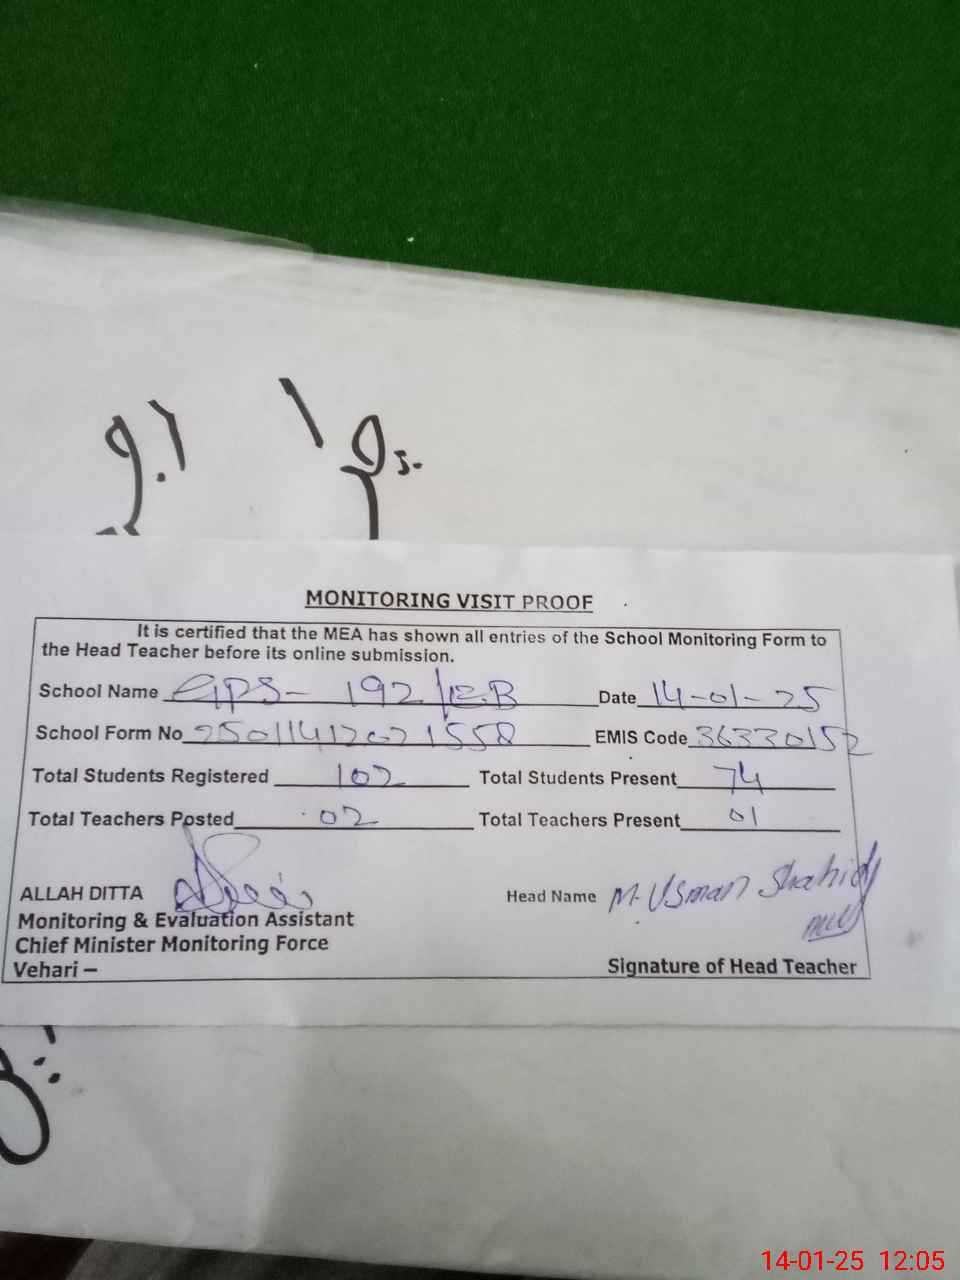 MONITORING VISIT PROOF
It is certified that the MEA has shown all entries of the School Monitoring Form to
the Head Teacher before its online submission.
School Name GPS- 192/EB Date 14-01-25
School Form No EMIS Code 36330152
Total Students Registered 102 Total Students Present 74
Total Teachers Posted 02 Total Teachers Present 01
ALLAH DITTA Head Name M. Usman Shahid
Monitoring & Evaluation Assistant
Chief Minister Monitoring Force
Vehari – Signature of Head Teacher
14-01-25 12:05